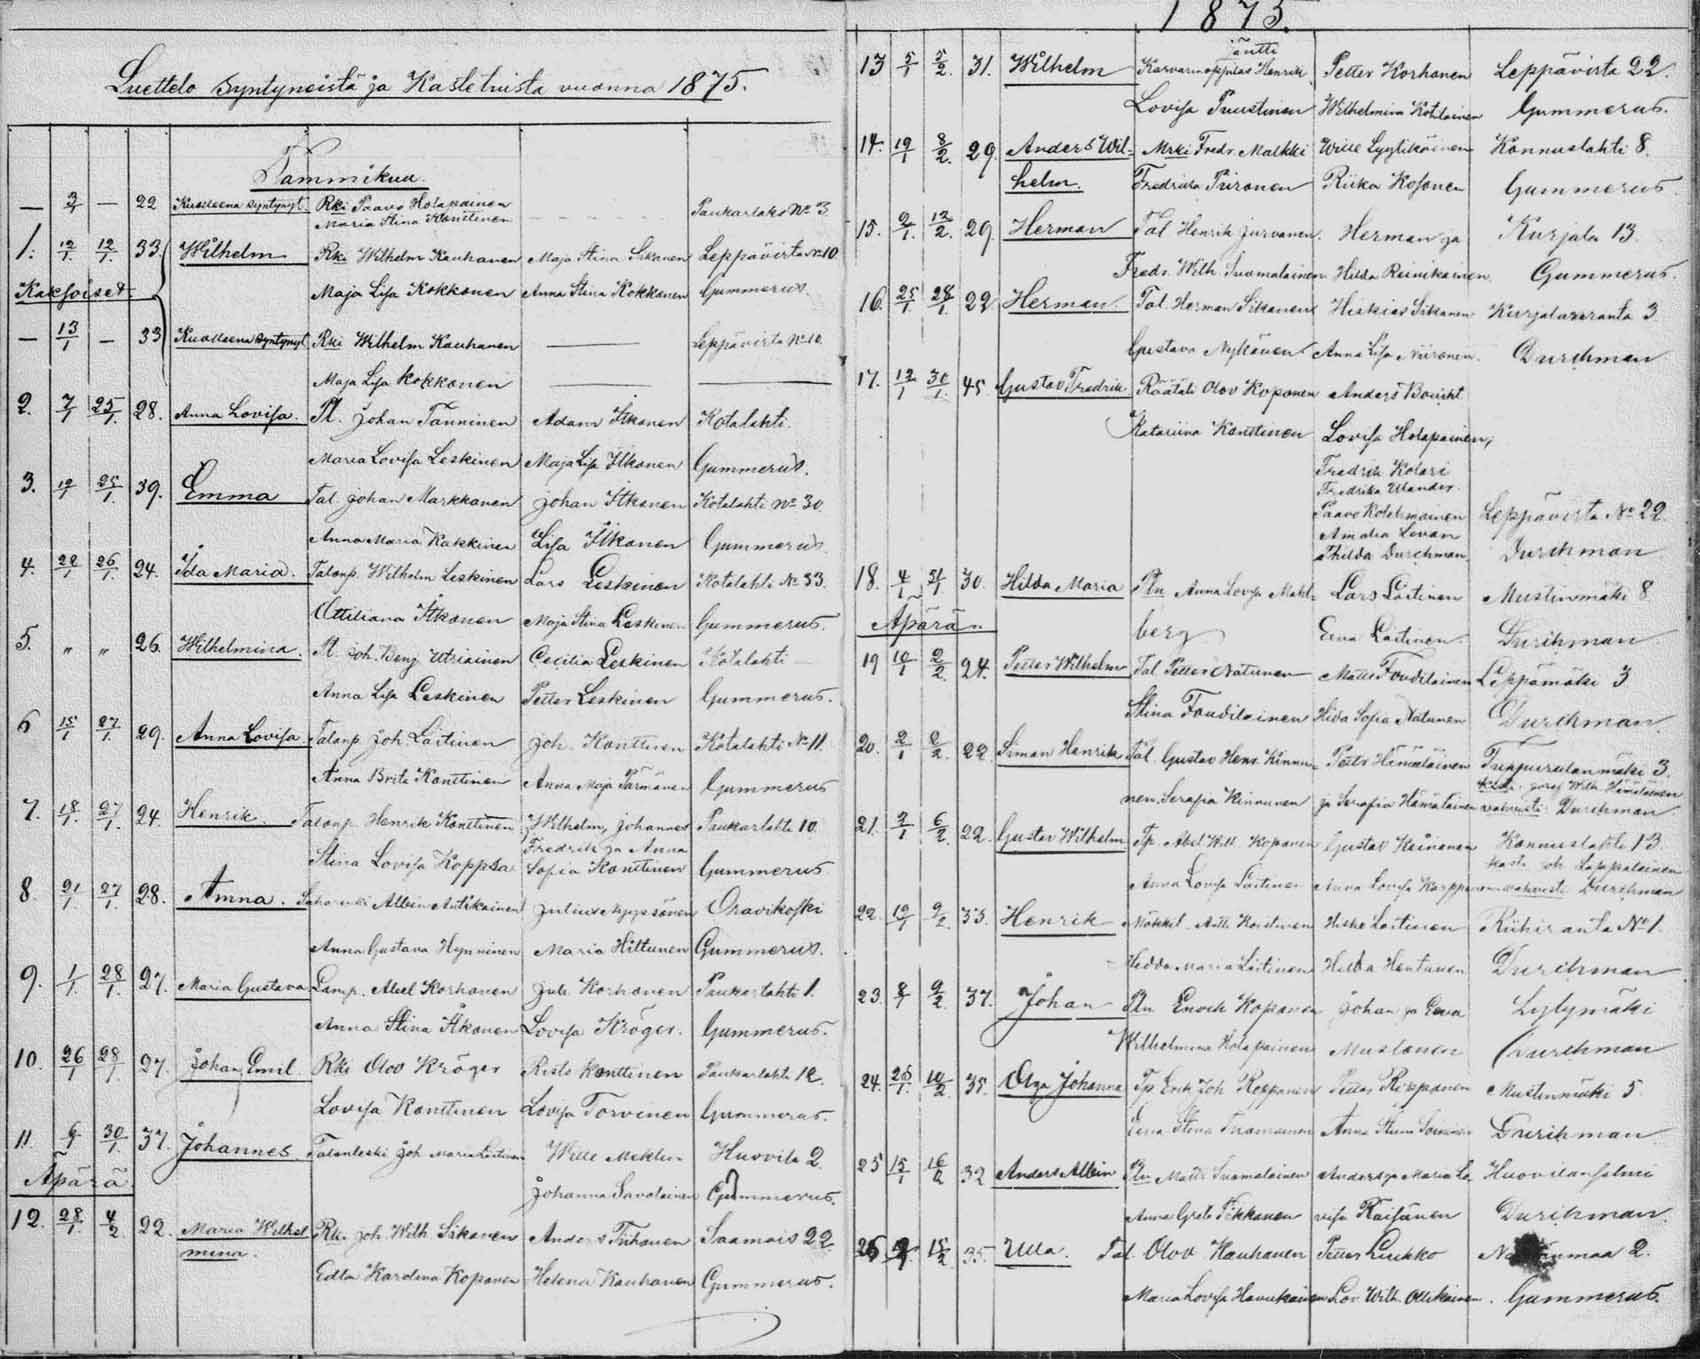 Luettelo Syntyneistä ja Kastetuista vuonna 1875.
Tammikuu.
— 2/1 — 22 Kuolleena syntynyt Rki Paavo Holopainen Paukarlaks No 3.
Maria Stina Konttinen
1. 12/1 12/1 33 Wilhelm Rki Wilhelm Kauhanen Maja Stina Sikanen Leppävirta No 10
Kaksoiset. Maja Lisa Kokkonen Anna Stina Kokkonen Gummerus.
— 13/1 — 33 Kuolleena syntynyt Rki Wilhelm Kauhanen — Leppävirta No 10
Maja Lisa Kokkonen — —
2. 7/1 25/1 28. Anna Lovisa. Pl. Johan Tanninen Adam Itkonen Kotalahti.
Maria Lovisa Leskinen Maja Lisa Itkonen Gummerus.
3. 19/1 25/1 39. Emma Tal. Johan Markkanen Johan Itkonen Kotalahti No 30.
Anna Maria Kakkinen Lisa Itkonen Gummerus
4. 22/1 26/1 24. Ida Maria. Talonp. Wilhelm Leskinen Lars Leskinen Kotalahti No 33.
Ottiliana Itkonen Maja Stina Leskinen Gummerus.
5. " " 26. Wilhelmina. Joh. Benj. Utriainen Cecilia Leskinen Kotalahti
Anna Lisa Leskinen Petter Leskinen Gummerus.
6 15/1 27/1 29. Anna Lovisa Talonp. Joh. Laitinen Joh. Konttinen Kotalahti No 11.
Anna Brita Konttinen Anna Maja Pärnänen Gummerus
7. 18/1 27/1 24. Henrik. Talonp. Henrik Konttinen Wilhelm, Johannes Paukarlahti 10.
Fredrik ja Anna
Stina Lovisa Koppsa Sofia Konttinen Gummerus
8. 21/1 27/1 28. Anna. Albin Antikainen Julius Oravikoski
Anna Gustava Hynninen Maria Hiltunen Gummerus.
9. 1/1 28/1 27. Maria Gustava Lamp. Abel Korhonen Juli Korhonen Paukarlahti 1.
Anna Stina Itkonen Lovisa Kröger. Gummerus.
10. 26/1 28/1 27. Johan Emil Rki Olov Kröger Risto Konttinen Paukarlahti 12.
Lovisa Konttinen Lovisa Torvinen Gummerus.
11. 6/1 30/1 37. Johannes Talonleski Joh Maria Laitinen Wille Meklin Huovila 2.
Äpärä Johanna Savolainen Gummerus.
12. 28/1 4/2 22. Maria Wilhel Rki. Joh. Wilh. Sikanen Anders Tiihonen Saamais 22
mina. Edla Karolina Koponen Helena Kauhanen Gummerus.
1875.
Jäntti
13 5/1 5/2 31. Wilhelm Karvarinoppilas Henrik Petter Korhonen Leppävirta 22.
Lovisa Puustinen Wilhelmina Kotilainen Gummerus.
14. 19/1 8/2 29 Anders Wil= Mrki Fredr. Malkki Wille Lyytikäinen Konnuslahti 8.
helm. Fredrika Piironen Riika Kosonen Gummerus
15. 9/1 12/2 29 Herman Tal Henrik Jurvanen. Herman ja Kurjala 13.
Fredr. Wilh. Suomalainen Hilda Reinikainen Gummerus.
16. 25/1 28/1 22 Herman. Tal. Herman Sikanen Hiskias Sikanen Kurjalanranta 3
Gustava Nykänen Anna Lisa Niironen. Durchman
17. 12/1 30/1 45 Gustav Fredrik Räätäli Olov Koponen Anders Boucht
Katariina Konttinen Lovisa Holopainen,
Fredrik Kolari
Fredrika Ulander.
Paavo Kolehmainen Leppävirta No 22
Amalia Levan
Hilda Durchman Durchman
18. 4/1 31/1 30. Hilda Maria Pln Anna Lovisa Mahl= Lars Laitinen Mustinmäki 8
Äpärä. berg Eeva Laitinen Durchman
19 10/1 2/2 24. Petter Wilhelm Tal Petter Natunen Matts Foudilainen Leppämäki 3
Stina Foudilainen Hilda Sofia Natunen Durchman.
20. 2/1 2/2 22 Simon Henrik Tal. Gustav Henr. Kinnu= Petter Hämäläinen 3.
kasti Josef Wilh. Hämäläinen
nen. Serafia Kinnunen ja Serafia Hämäläinen vahvisti Durchman
21. 2/1 6/2 22. Gustav Wilhelm Tp. Abel Wilh. Koponen Gustav Keinonen Konnuslahti 13
kasti Joh Lappalainen
Anna Lovisa Laitinen Anna Lovisa Karppanen vahvisti Durchman
22. 19/1 9/2 33. Henrik Mökkil. Antti Konttinen Hiske Laitinen Riihiranta No 1.
Hedda Maria Laitinen Hilda Hentunen Durchman
23. 8/1 9/2 37. Johan Pln Enoch Koponen Johan ja Eeva Lylymäki
Wilhelmina Holopainen Mustonen Durchman
24. 25/1 10/2 35. Olga Johanna Tp. Erik Joh. Kopponen Petter Ripponen Mustinmäki 5.
Eeva Stina Anna Stina Durchman
25 15/1 16/2 32 Anders Albin Pln Matts Suomalainen Anders ja Maria Lo Huovilansalmi
Anna Greta Pekkanen visa Raisänen Durchman
26 15/2 35. Ulla. Tal. Olov Kauhanen Petter Luukko 2.
Maria Lovisa Havukainen Lov. Wilh. Ollikainen. Gummerus.